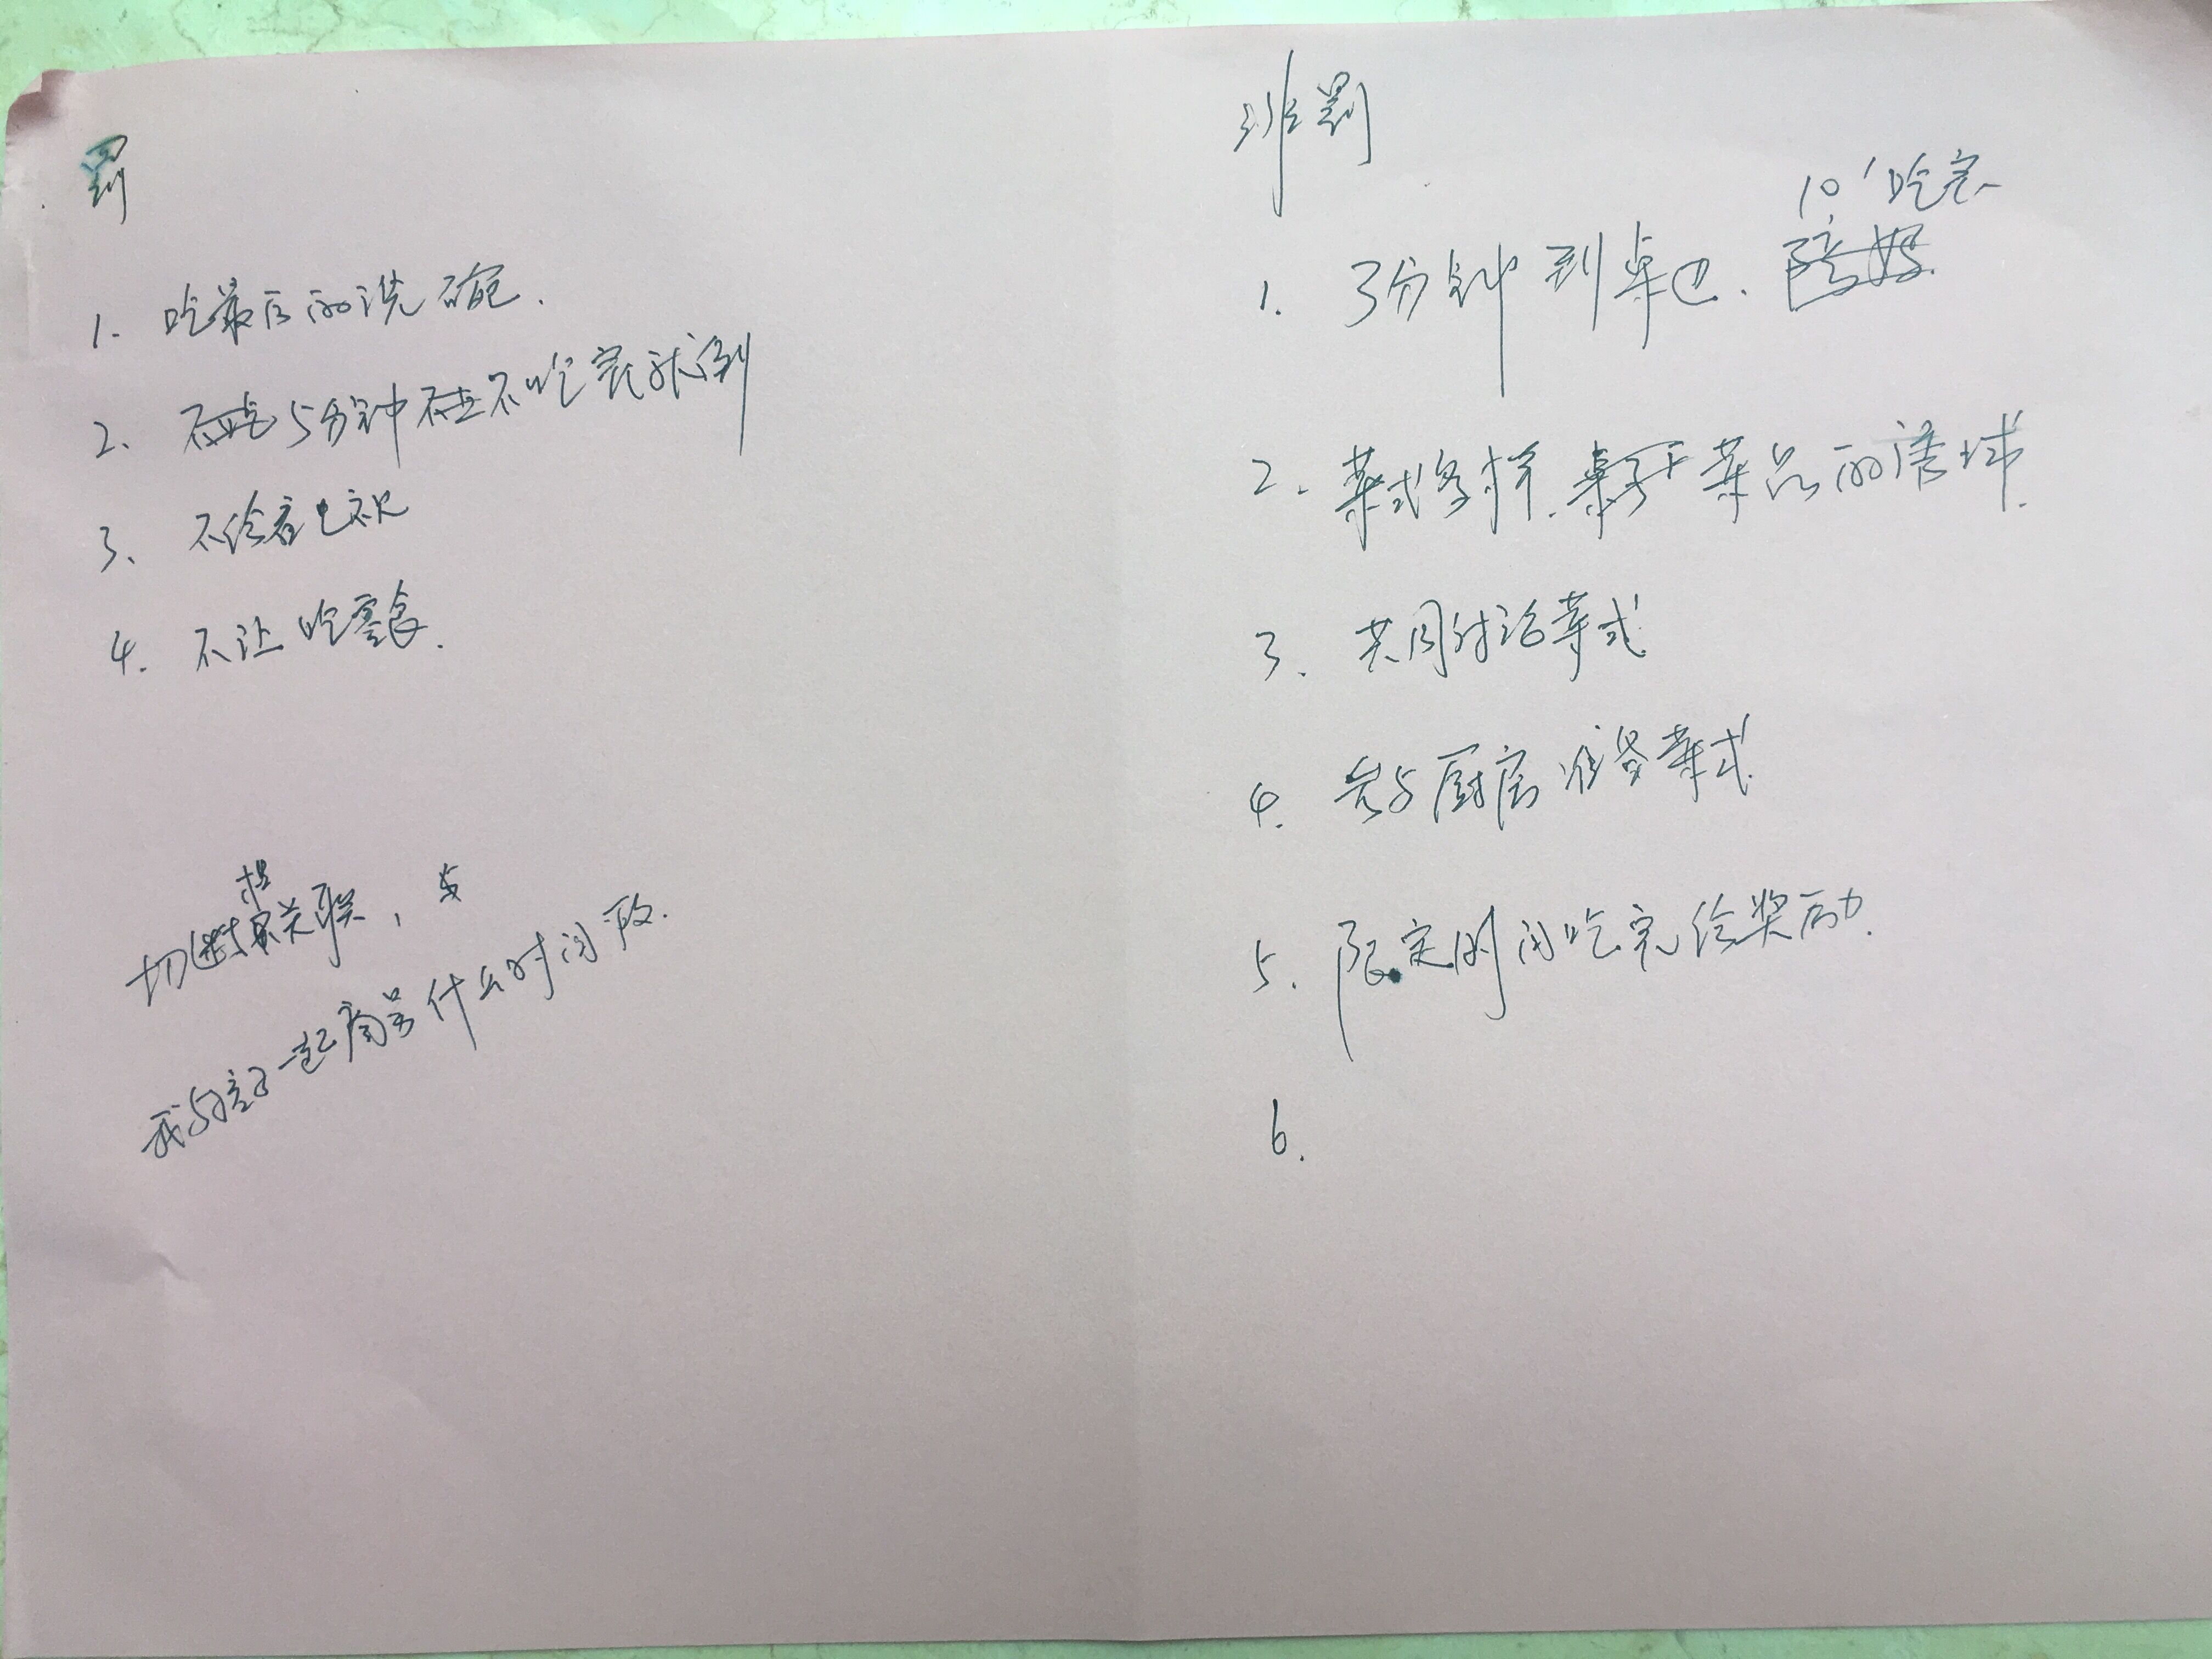 罚
1. 吃最后的洗碗.
2. 5分钟不吃完就倒
3. 不给看电视
4. 不让吃零食.
相关联,
我与孩子一起商量什么时间做.
非罚
10'吃完
1. 3分钟到桌边.
2. 菜式多样. 菜品的诱惑.
3. 共同讨论菜式
4. 参与厨房准备菜式
5. 限定时间吃完给奖励.
6.